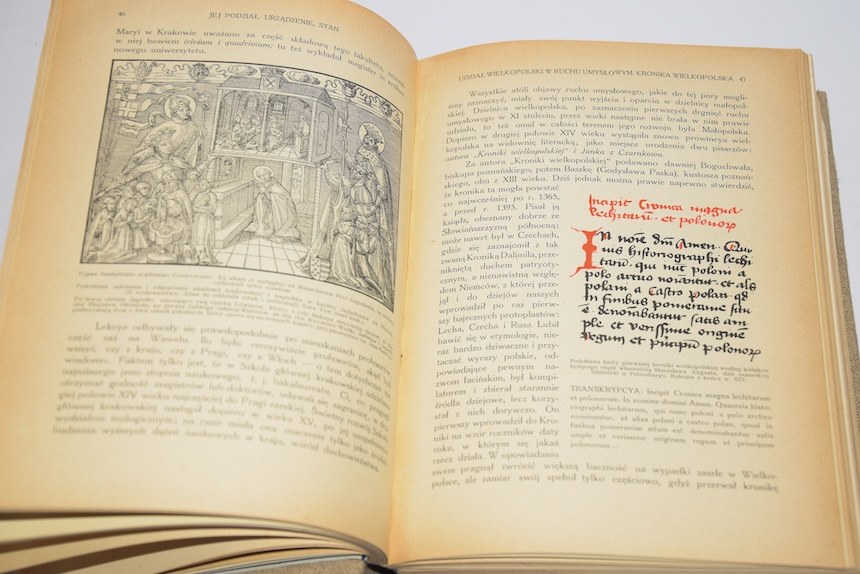 46 JEJ PODZIAŁ, URZĄDZENIE, STAN
Maryi w Krakowie uważano za część składową tego fakultetu,
w niej bowiem trivium i quadrivium; tu też wykładał magister in artibus
nowego uniwersytetu.
Lekcye odbywały się prawdopodobnie po mieszkaniach profesorów,
część zaś na Wawelu. Bu była rzeczywiście profesorów, skąd ich
wzięci, czy z kraju, czy z Pragi, czy z Włoch — o tem dotychczas nie
wiadomo. Faktem tylko jest, że w Szkole głównej krakowskiej
najniższego jeno stopnia naukowego, t. j. bakalaureatu. Ci, co pragnęli
otrzymać godność magistrów lub doktorów, udawali się zagranicę, w drugiej
giej połowie XIV wieku najczęściej do Pragi czeskiej. Świetny rozwój Szkoły
głównej krakowskiej nastąpił dopiero w wieku XV, po jej uzupełnieniu
wydziałem teologicznym; na razie miała ona znaczenie tylko jako środek
budzenia wyższych dążeń naukowych w kraju, wśród duchowieństwa.
UDZIAŁ WIELKOPOLSKI W RUCHU UMYSŁOWYM. KRONIKA WIELKOPOLSKA 47
Wszystkie atoli objawy ruchu umysłowego, jakie do tej pory mogli-
śmy zaznaczyć, miały swój punkt wyjścia i oparcia w dzielnicy małopol-
skiej. Dzielnica wielkopolska, po zaznaczeniu pierwszych drgnięć ruchu
umysłowego w XI stuleciu, przez wieki następne nie brała w nim prawie
udziału, to też omal w całości terenem jego rozwoju była Małopolska.
Dopiero w drugiej połowie XIV wieku wystąpiła znowu prowincya wiel-
kopolska na widownię literacką, jako miejsce urodzenia dwu pisarzów:
autora „Kroniki wielkopolskiej" i Janka z Czarnkowa.
Za autora „Kroniki wielkopolskiej" podawano dawniej Boguchwała,
biskupa poznańskiego, potem Baszkę (Godysława Paska), kustosza poznań-
skiego, obu z XIII wieku. Dziś jednak można prawie napewno stwierdzić,
że kronika ta mogła powstać
co najwcześniej po r. 1365,
a przed r. 1395. Pisał ją
ksiądz, obeznany dobrze ze
Słowiańszczyzną północną;
może nawet był w Czechach,
gdzie się zaznajomił z tak
zwaną Kroniką Dalimila, prze-
niknięta duchem patryoty-
cznym, a nienawistną wzglę-
dem Niemców, z której przej-
ął i do dziejów naszych
wprowadził po raz pierw-
szy bajecznych protoplastów:
Lecha, Czecha i Rusa. Lubił
bawić się w etymologie, nie-
raz bardzo dziwaczne i przy-
taczać wyrazy polskie, od-
powiadające pewnym na-
zwom łacińskim, był kompi-
latorem i zbierał starannie
źródła dziejowe, lecz korzy-
stał z nich dorywczo. On
pierwszy wprowadził do Kro-
niki na wzór roczników daty
roku, w którym się jakaś
rzecz działa. W opowiadaniu
swem pragnął zwrócić większą baczność na wypadki zaszłe w Wielko-
polsce, ale zamiar swój spełnił tylko częściowo, gdyż przerwał kronikę
Incipit Cronica magna
lechitarū. et polonor
In noīe dm̄ Amen. Quī
vis historiographi lechi
tarū. qui nūc poloni a
polo artico noīantur. et als
polani a Castro polan qd
in finibus pomeranie situ
ē. denoīabantur satis am
ple et verissime origine
Regum et pīncipū polonor
Podobizna karty pierwszej kroniki wielkopolskiej według kodeksu
będącego niegdyś własnością Stanisława Augusta, dziś cesarskiej
biblioteki w Petersburgu. Rękopis z końca w. XIV.
TRANSKRYPCYA: Incipit Cronica magna lechitarum
et polonorum. In nomine domini Amen. Quamvis histo-
riographi lechitarum, qui nunc poloni a polo artico
nominantur, et alias polani a castro polan, quod in
finibus pomeraniae situm est denominabantur satis
ample et verissime originem regum et principum
polonorum...